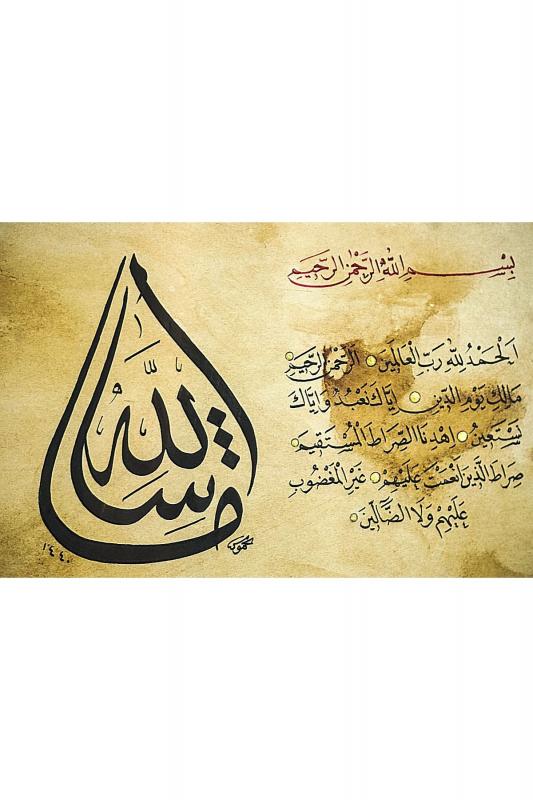 بِسْمِ اللهِ الرَّحْمٰنِ الرَّحِيمِ
اَلْحَمْدُ لِلّٰهِ رَبِّ الْعَالَمِينَ الرَّحْمٰنِ الرَّحِيمِ
مَالِكِ يَوْمِ الدِّينِ اِيَّاكَ نَعْبُدُ وَاِيَّاكَ
نَسْتَعِينُ اِهْدِنَا الصِّرَاطَ الْمُسْتَقِيمَ
صِرَاطَ الَّذِينَ اَنْعَمْتَ عَلَيْهِمْ غَيْرِ الْمَغْضُوبِ
عَلَيْهِمْ وَلَا الضَّالِّينَ
مَا شَاءَ اللّٰه
١٤٤٠